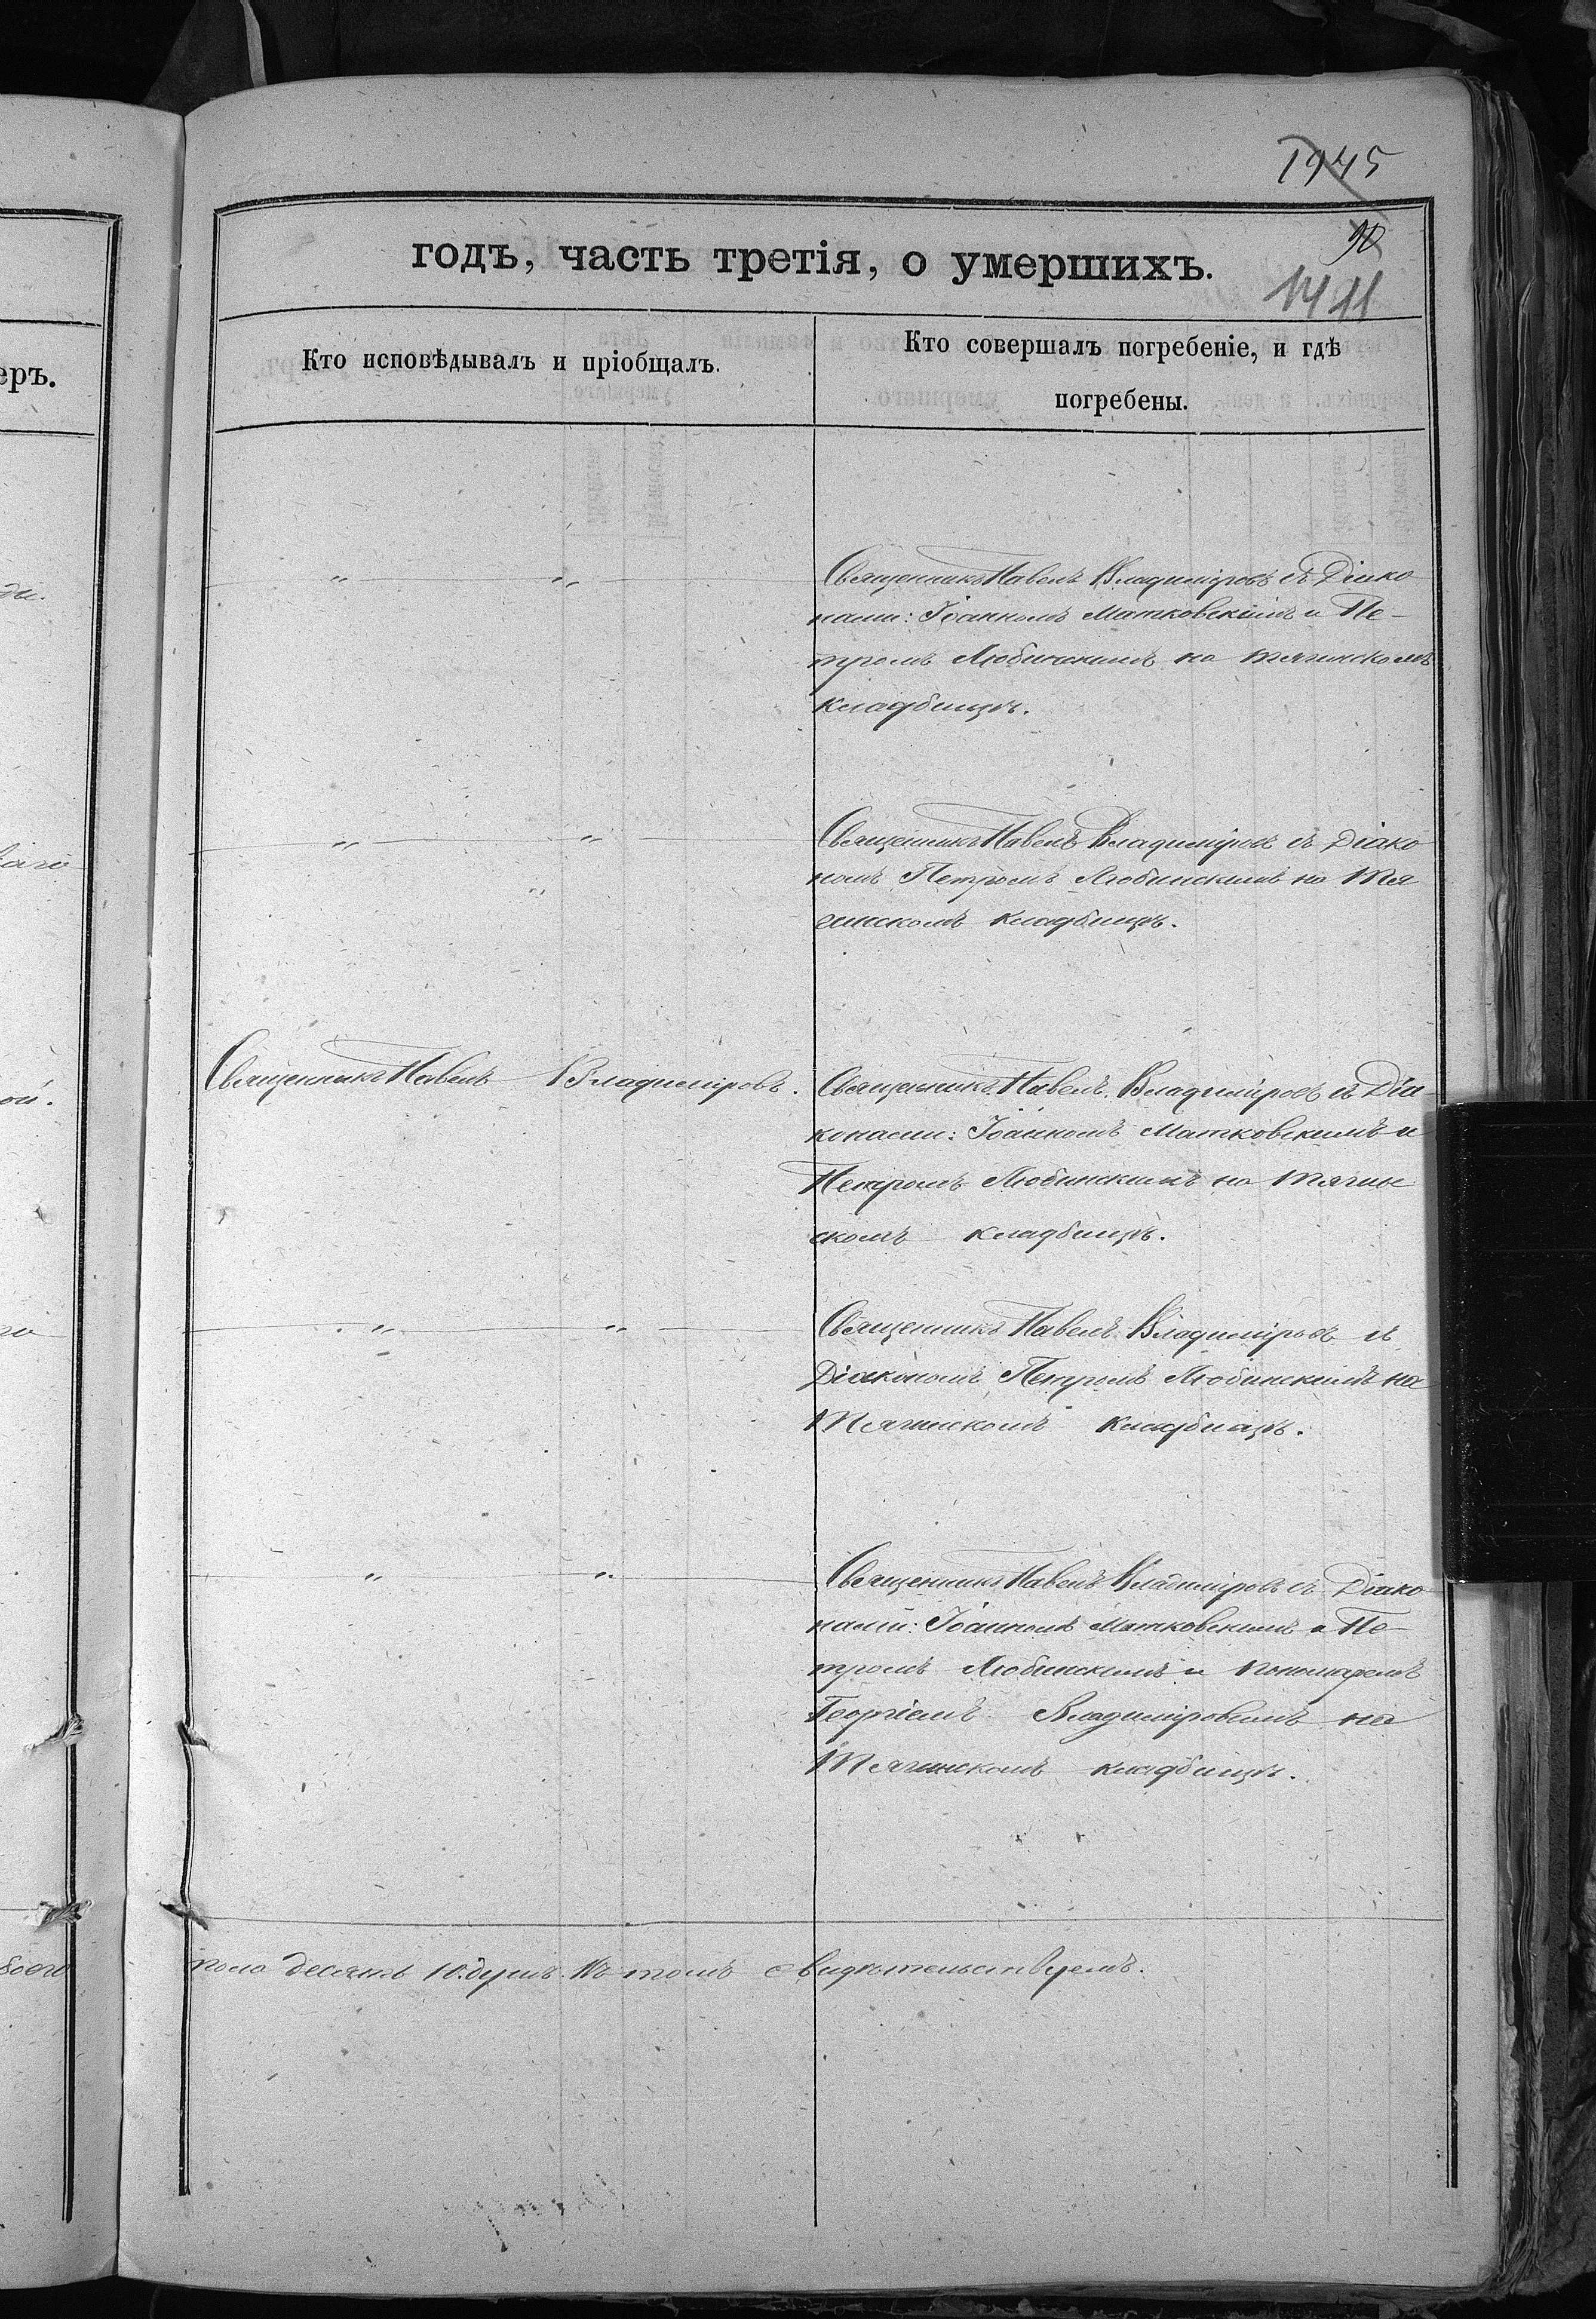 1945
90
1411
годъ, часть третія, о умершихъ.
Кто исповѣдывалъ и пріобщалъ.
Кто совершалъ погребеніе, и гдѣ
погребены.
еръ.
Священникъ Павелъ Владиміровъ съ Діако
нами: Іоанномъ Матковскимъ и Пе-
тромъ Любинскимъ на Тягинскомъ
кладбищѣ.
Священникъ Павелъ Владиміровъ съ Діако
номъ Петромъ Любинскимъ на Тя
гинскомъ кладбищѣ.
Священникъ Павелъ Владиміровъ.
Священникъ Павелъ Владиміровъ съ Діа-
конами: Іоанномъ Матковскимъ и
Петромъ Любинскимъ на Тягин
скомъ кладбищѣ.
Священникъ Павелъ Владиміровъ съ
Діакономъ Петромъ Любинскимъ на
Тягинскомъ кладбищѣ.
Священникъ Павелъ Владиміровъ съ Діако
нами: Іоанномъ Матковскимъ и Пе-
тромъ Любинскимъ и Пономаремъ
Георгіемъ Владиміровымъ на
Тягинскомъ кладбищѣ.
пола десять 10. душъ. Въ томъ свидѣтельствуемъ.